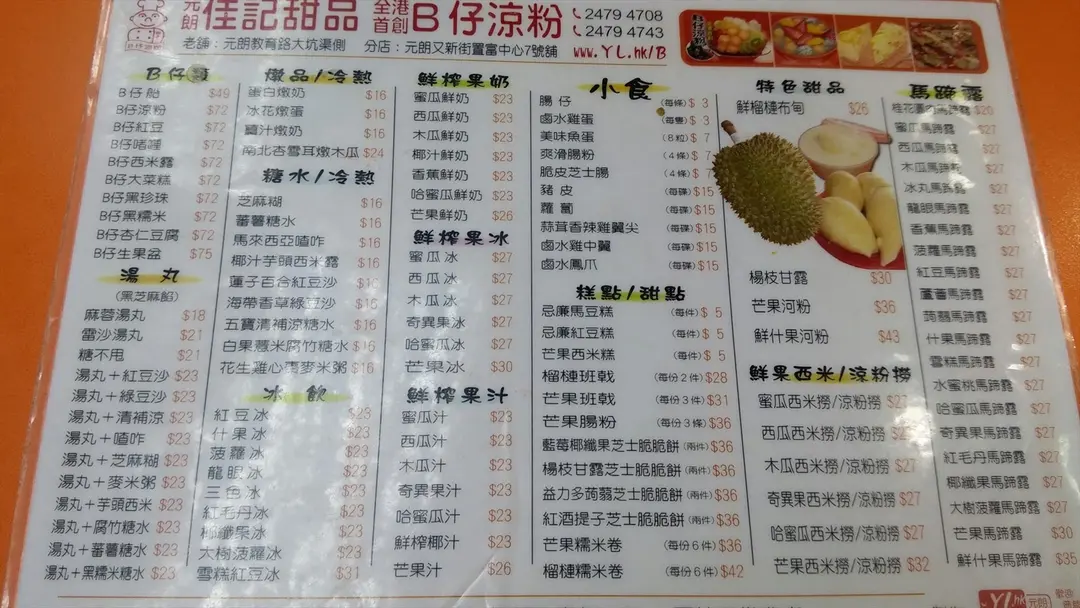 元朗 佳記甜品 全港首創 B仔涼粉
2479 4708
2479 4743
老舖：元朗教育路大坑渠側 分店：元朗又新街置富中心7號舖 www.YL.hk/B
B仔類
B仔胎 $49
B仔涼粉 $72
B仔紅豆 $72
B仔啫喱 $72
B仔西米露 $72
B仔大菜糕 $72
B仔黑珍珠 $72
B仔黑糯米 $72
B仔杏仁豆腐 $72
B仔生果盆 $75
湯丸
(黑芝麻餡)
麻蓉湯丸 $18
雷沙湯丸 $21
糖不甩 $21
湯丸＋紅豆沙 $23
湯丸＋綠豆沙 $23
湯丸＋清補涼 $23
湯丸＋喳咋 $23
湯丸＋芝麻糊 $23
湯丸＋麥米粥 $23
湯丸＋芋頭西米 $23
湯丸＋腐竹糖水 $23
湯丸＋蕃薯糖水 $23
湯丸＋黑糯米糖水 $23
燉品/冷熱
蛋白燉奶 $16
冰花燉蛋 $16
薑汁燉奶 $16
南北杏雪耳燉木瓜 $24
糖水/冷熱
芝麻糊 $16
蕃薯糖水 $16
馬來西亞喳咋 $16
椰汁芋頭西米露 $16
蓮子百合紅豆沙 $16
海帶香草綠豆沙 $16
五寶清補涼糖水 $16
白果薏米腐竹糖水 $16
花生雞心棗麥米粥 $16
冰飲
紅豆冰 $23
什果冰 $23
菠蘿冰 $23
龍眼冰 $23
三色冰 $23
紅毛丹冰 $23
椰纖果冰 $23
大樹菠蘿冰 $23
雪糕紅豆冰 $31
鮮榨果奶
蜜瓜鮮奶 $23
西瓜鮮奶 $23
木瓜鮮奶 $23
椰汁鮮奶 $23
香蕉鮮奶 $23
哈蜜瓜鮮奶 $23
芒果鮮奶 $26
鮮榨果冰
蜜瓜冰 $27
西瓜冰 $27
木瓜冰 $27
奇異果冰 $27
哈蜜瓜冰 $27
芒果冰 $30
鮮榨果汁
蜜瓜汁 $23
西瓜汁 $23
木瓜汁 $23
奇異果汁 $23
哈蜜瓜汁 $23
鮮榨椰汁 $23
芒果汁 $26
小食
腸仔 (每條) $ 3
鹵水雞蛋 (每隻) $ 3
美味魚蛋 (8粒) $ 7
爽滑腸粉 (4條) $ 7
脆皮芝士腸 (4條) $ 7
豬皮 (每碟) $15
蘿蔔 (每碟) $15
蒜茸香辣雞翼尖 (每碟) $15
鹵水雞中翼 (每碟) $15
鹵水鳳爪 (每碟) $15
糕點/甜點
忌廉馬豆糕 (每件) $ 5
忌廉紅豆糕 (每件) $ 5
芒果西米糕 (每件) $ 5
榴槤班戟 (每份2件) $28
芒果班戟 (每份3件) $31
芒果腸粉 (每份3條) $36
藍莓椰纖果芝士脆脆餅 (兩件) $36
楊枝甘露芝士脆脆餅 (兩件) $36
益力多蒟蒻芝士脆脆餅 (兩件) $36
紅酒提子芝士脆脆餅 (兩件) $36
芒果糯米卷 (每份6件) $36
榴槤糯米卷 (每份6件) $42
特色甜品
鮮榴槤布甸 $26
楊枝甘露 $30
芒果河粉 $36
鮮什果河粉 $43
鮮果西米/涼粉撈
蜜瓜西米撈/涼粉撈 $27
西瓜西米撈/涼粉撈
木瓜西米撈/涼粉撈 $27
奇異果西米撈/涼粉撈 $27
哈蜜瓜西米撈/涼粉撈 $27
芒果西米撈/涼粉撈 $32
馬蹄露
$20
蜜瓜馬蹄露 $27
西瓜馬蹄露 $27
木瓜馬蹄露 $27
冰丸馬蹄露 $27
龍眼馬蹄露 $27
香蕉馬蹄露 $27
菠蘿馬蹄露 $27
紅豆馬蹄露 $27
蘆薈馬蹄露 $27
蒟蒻馬蹄露 $27
什果馬蹄露 $27
雪糕馬蹄露 $27
水蜜桃馬蹄露 $27
哈蜜瓜馬蹄露 $27
奇異果馬蹄露 $27
紅毛丹馬蹄露 $27
椰纖果馬蹄露 $27
大樹菠蘿馬蹄露 $27
芒果馬蹄露 $30
鮮什果馬蹄露 $35
YL.hk 元朗